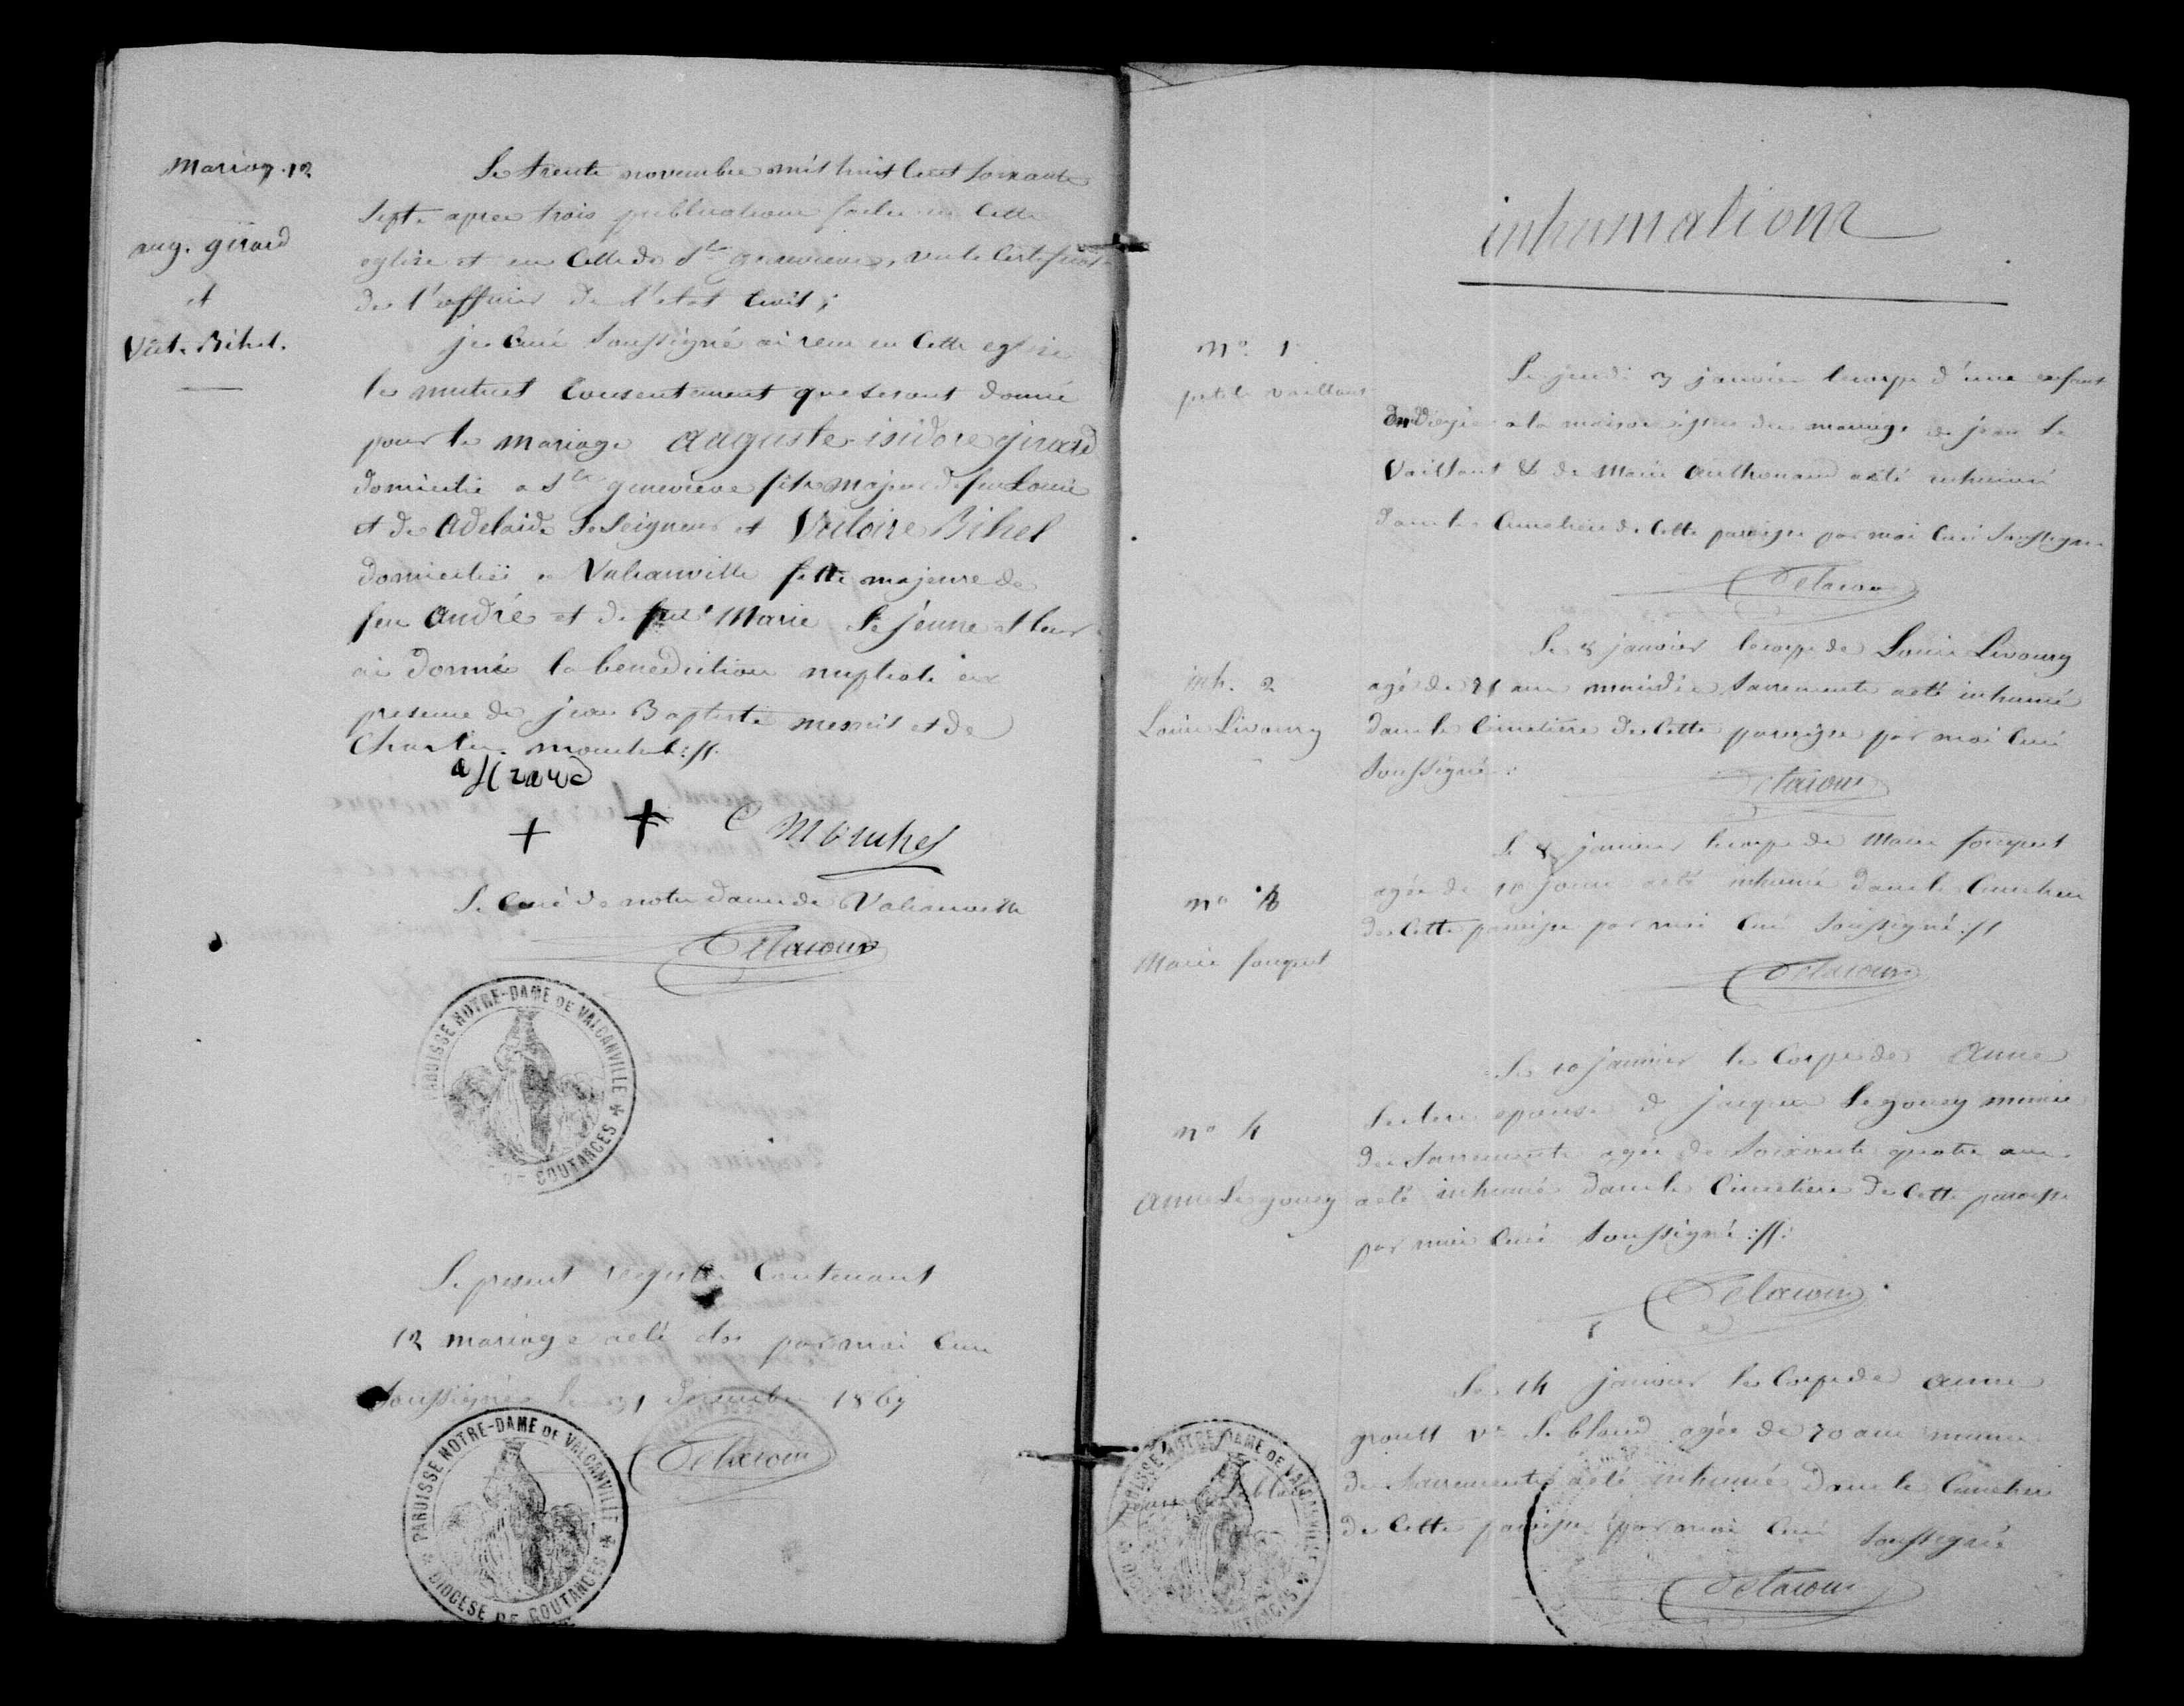 Mariag. 12
aug. girard
et
Vict. Bihel.
Le trente novembre mil huit cent soixante
sept. apres trois publications faites en cette
eglise et en celle de Ste genevieve, vu le certificat
de l'officier de l'etat civil;
je curé soussigné ai recu en cette eglise
le mutuel consentement que se sont donné
pour le mariage auguste isidore girard
domicilié a Ste genevieve fils majeur de feu Louis
et de Adelaide Le Seigneur et Victoire Bihel
domiciliée a Valcanville fille majeure de
feu André et de feue Marie Le jeune et leur
ai donné la benediction nuptiale en
presence de jean Baptiste mesnil et de
Charles mouchel :ff.
a girard
+ + C Mouchel
Le curé de notre dame de Valcanville
Delacour
PAROISSE NOTRE-DAME DE VALCANVILLE
DE COUTANCES
Le present registre contenant
12 mariages a eté clos par moi curé
soussigné le 31 decembre 1867
Delacour
PAROISSE NOTRE-DAME DE VALCANVILLE
DIOCESE DE COUTANCES
inhumations
no. 1
petite vaillant
Le jeudi 3 janvier le corps d'une enfant
ondoyée a la maison issue du mariage de jean Le
Vaillant & de Marie a eté inhumé
dans le cimetiere de cette paroisse par moi curé soussigné
Delacour
inh. 2
Louis Livoury
Le 8 janvier le corps de Louis Livoury
agé de ans muni des sacrements a eté inhumé
dans le cimetiere de cette paroisse par moi curé
soussigné :
Delacour
no 3
Marie fouquet
Le 8 janvier le corps de Marie fouquet
agée de 10 jours a eté inhumé dans le cimetiere
de cette paroisse par moi curé soussigné :ff
Delacour
no 4
anne Legouey
Le 10 janvier le corps de Anne
Leclerc epouse de jacques Legouey munie
des sacrements agée de soixante quatre ans
a eté inhumé dans le cimetiere de cette paroisse
par moi curé soussigné :ff:
Delacour
Le 14 janvier le corps de anne
groult ve Le bland agée de 70 ans munie
des sacrements a eté inhumé dans le cimetiere
de cette paroisse par moi curé soussigné
Delacour
PAROISSE NOTRE-DAME DE VALCANVILLE